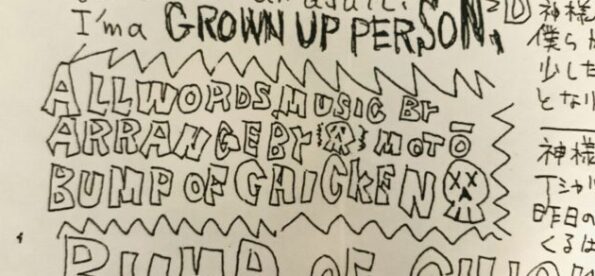 I'm a GROWN UP PERSON.
ALL WORDS, MUSIC BY
ARRANGE BY MOTŌ
BUMP OF CHICKEN
BUMP OF CHICKEN
D
神様
僕ら
少した
となり
神様
Tシャ
昨日の
くるは